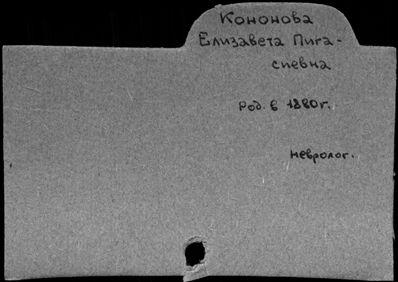 Кононова
Елизавета Пига-
сиевна
Род. в 1880г.
невролог.